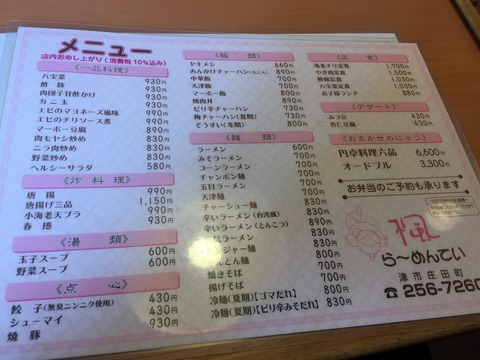 メニュー
店内おめし上がり(消費税10%込み)
《一品料理》
八宝菜 930円
酢豚 930円
肉団子甘酢かけ 930円
カニ玉 930円
エビのマヨネーズ風味 990円
エビのチリソース煮 990円
マーボー豆腐 890円
肉モヤシ炒め 580円
ニラ肉炒め 830円
野菜炒め 830円
ヘルシーサラダ 580円
《炸料理》
唐揚 990円
唐揚げ三品 1,150円
小海老天プラ 990円
春捲 930円
《湯類》
玉子スープ 600円
野菜スープ 600円
《点心》
餃子(無臭ニンニク使用) 430円
シューマイ 430円
焼豚 930円
《飯類》
ヤキメシ 660円
あんかけチャーハン 890円
中華飯
天津飯
マーボー飯
焼肉丼
ピリ辛チャーハン
梅チャーハン(夏期)
ぞうすい(冬期)
《麺類》
ラーメン
みそラーメン
コーンラーメン
チャンポン麺
五目ラーメン
天津麺
チャーシュー麺
辛いラーメン(台湾風)
辛いラーメン(とんこつ)
ラーメン
ジャー麺
焼きそば 700円
揚げそば
冷麺(夏期)【ゴマだれ】
冷麺(夏期)【ピリ辛みそだれ】 830円
《定食》
海老チリ定食 1,700円
やき肉定食 1,500円
酢豚定食 1,030円
八宝菜定食 1,030円
お子様ランチ 880円
《デザート》
みつ豆 430円
杏仁豆腐 430円
《おまかせめにゅう》
円卓料理六品 6,600円
オードブル 3,300円
お弁当のご予約も承ります
楓
ら～めんてい
津市庄田町
☎256-7260